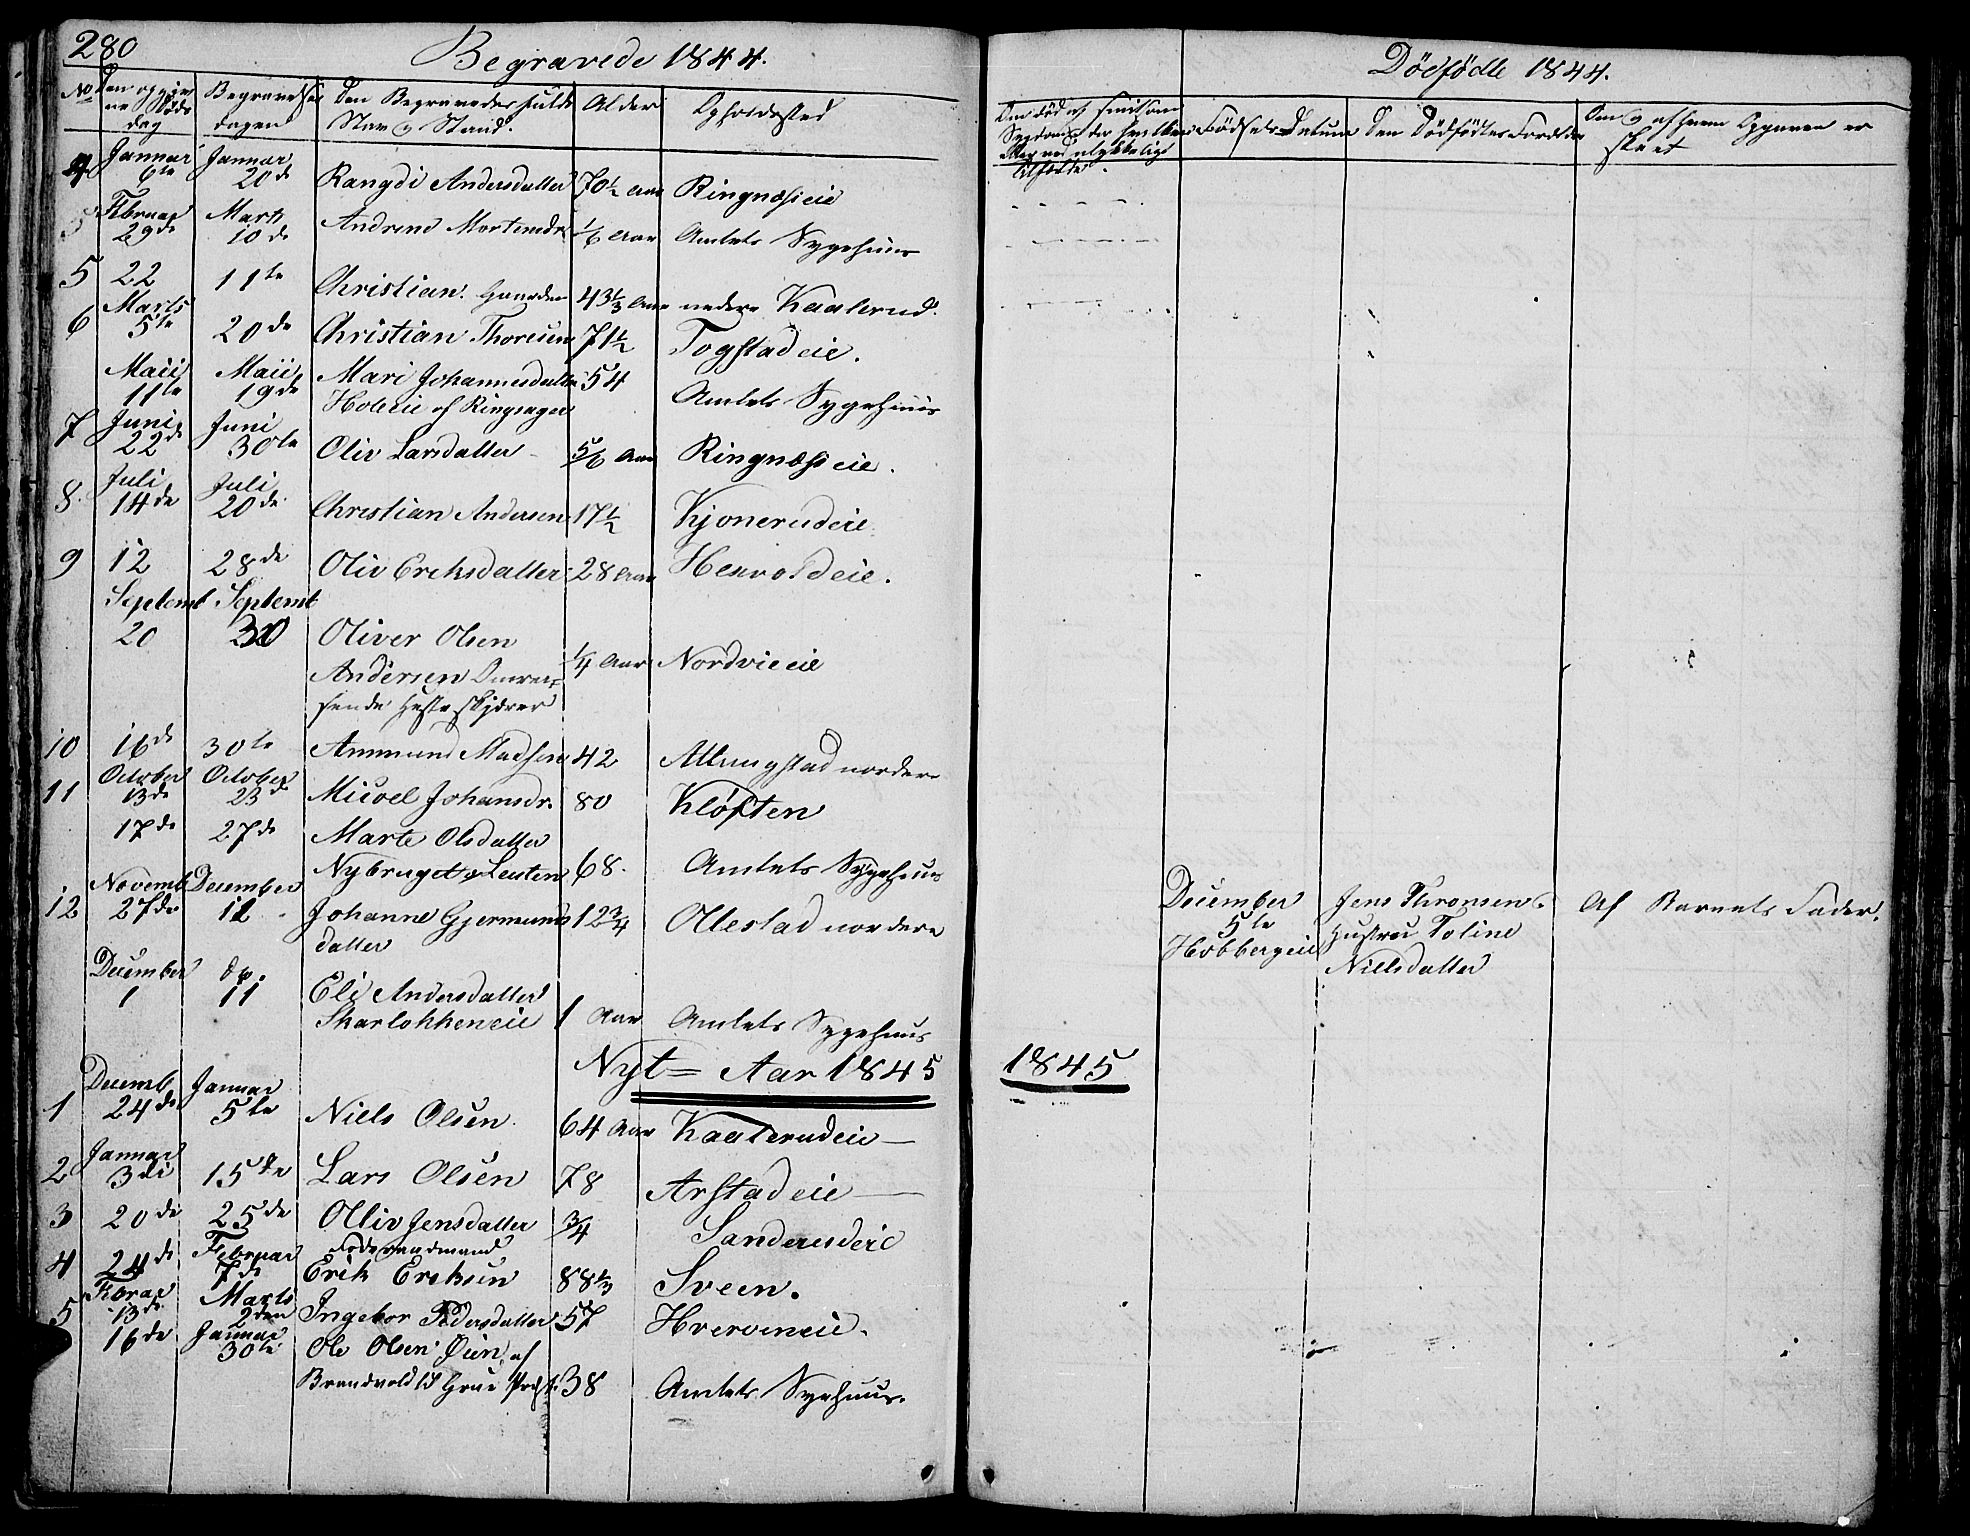 280
Begravede 1844.
No Den opgivne Døds dag Begravelses dagen Den Begravedes fulde Navn og Stand. Alder Opholdssted
4 Januar 6te Januar 20de Rangdi Andersdatter 70½ Aar Ringnæsieie
Februar 29de Marts 10de Andrine Mortensdr. 1/6 Aar Amtets Sygehuus
5 22 11te Christian Gaarden 43⅓ Aar nedre Kaalerud.
6 Marts 5te 20de Christian Thoresen 71½ Togstadeie.
Maii 11te Maii 19de Mari Johannesdatter 54
Holeeie af Ringsager Amtets Sygehuus
7 Juni 22de Juni 30te Oliv Larsdatter 5/6 Aar Ringnæsieie.
8. Juli 14de Juli 20de Christian Andersen 17½ Kjonerudeie.
9 12 28de Oliv Eriksdatter 28 Aar Henvoldeie.
Septemb Septemb
20 Oliver Olsen
Andersen Omreisende Hesteskjærer ¼ Aar Nordvieeie
10 16de 30te Ammund Madsen 42 Allungstad nordere
11 October 13de October 23de Micoel Johansdr. 80 Kløften
17de 27de Marte Olsdatter
Nybruget Leuten 68. Amtets Sygehuus
12 Novemb 27de December 12 Johanne Gjermunds
datter 12¾ Ollestad nordere
December 1 do. 11 Eli Andersdatter
Skarlokkeneie 1 Aar Amtets Sygehuus
Nyt = Aar 1845
1 Decemb 24de Januar 5te Niels Olsen. 64 Aar Kaalerudeie
2 Januar 3die 15de Lars Olsen 78 Arstadeie
3 20de 25de Olliv Jensdatter ¾ Sanderudeie
4 24de Februar 7de Føderaadmand
Erik Eriksen 88⅓ Sveen.
5 Febrar 13de Marts 2den Ingebor Pedersdatter 57 Hverveneie.
16de Januar 30te Ole Olsen Øien af
Brandvold i Grue Præst. 38 Amtets Sygehuus.
Dødfødte 1844.
Om død af smitsom Sygdom der hvilken eller ved ulykkelig Tilfælde. Fødsels Datum Den Dødfødtes Forældre Om og af hvem Opgaven er skeet
December 5te Hobbergeie Jens Thronsen
Hustru Toline
Nielsdatter Af Barnets Fader.
1845